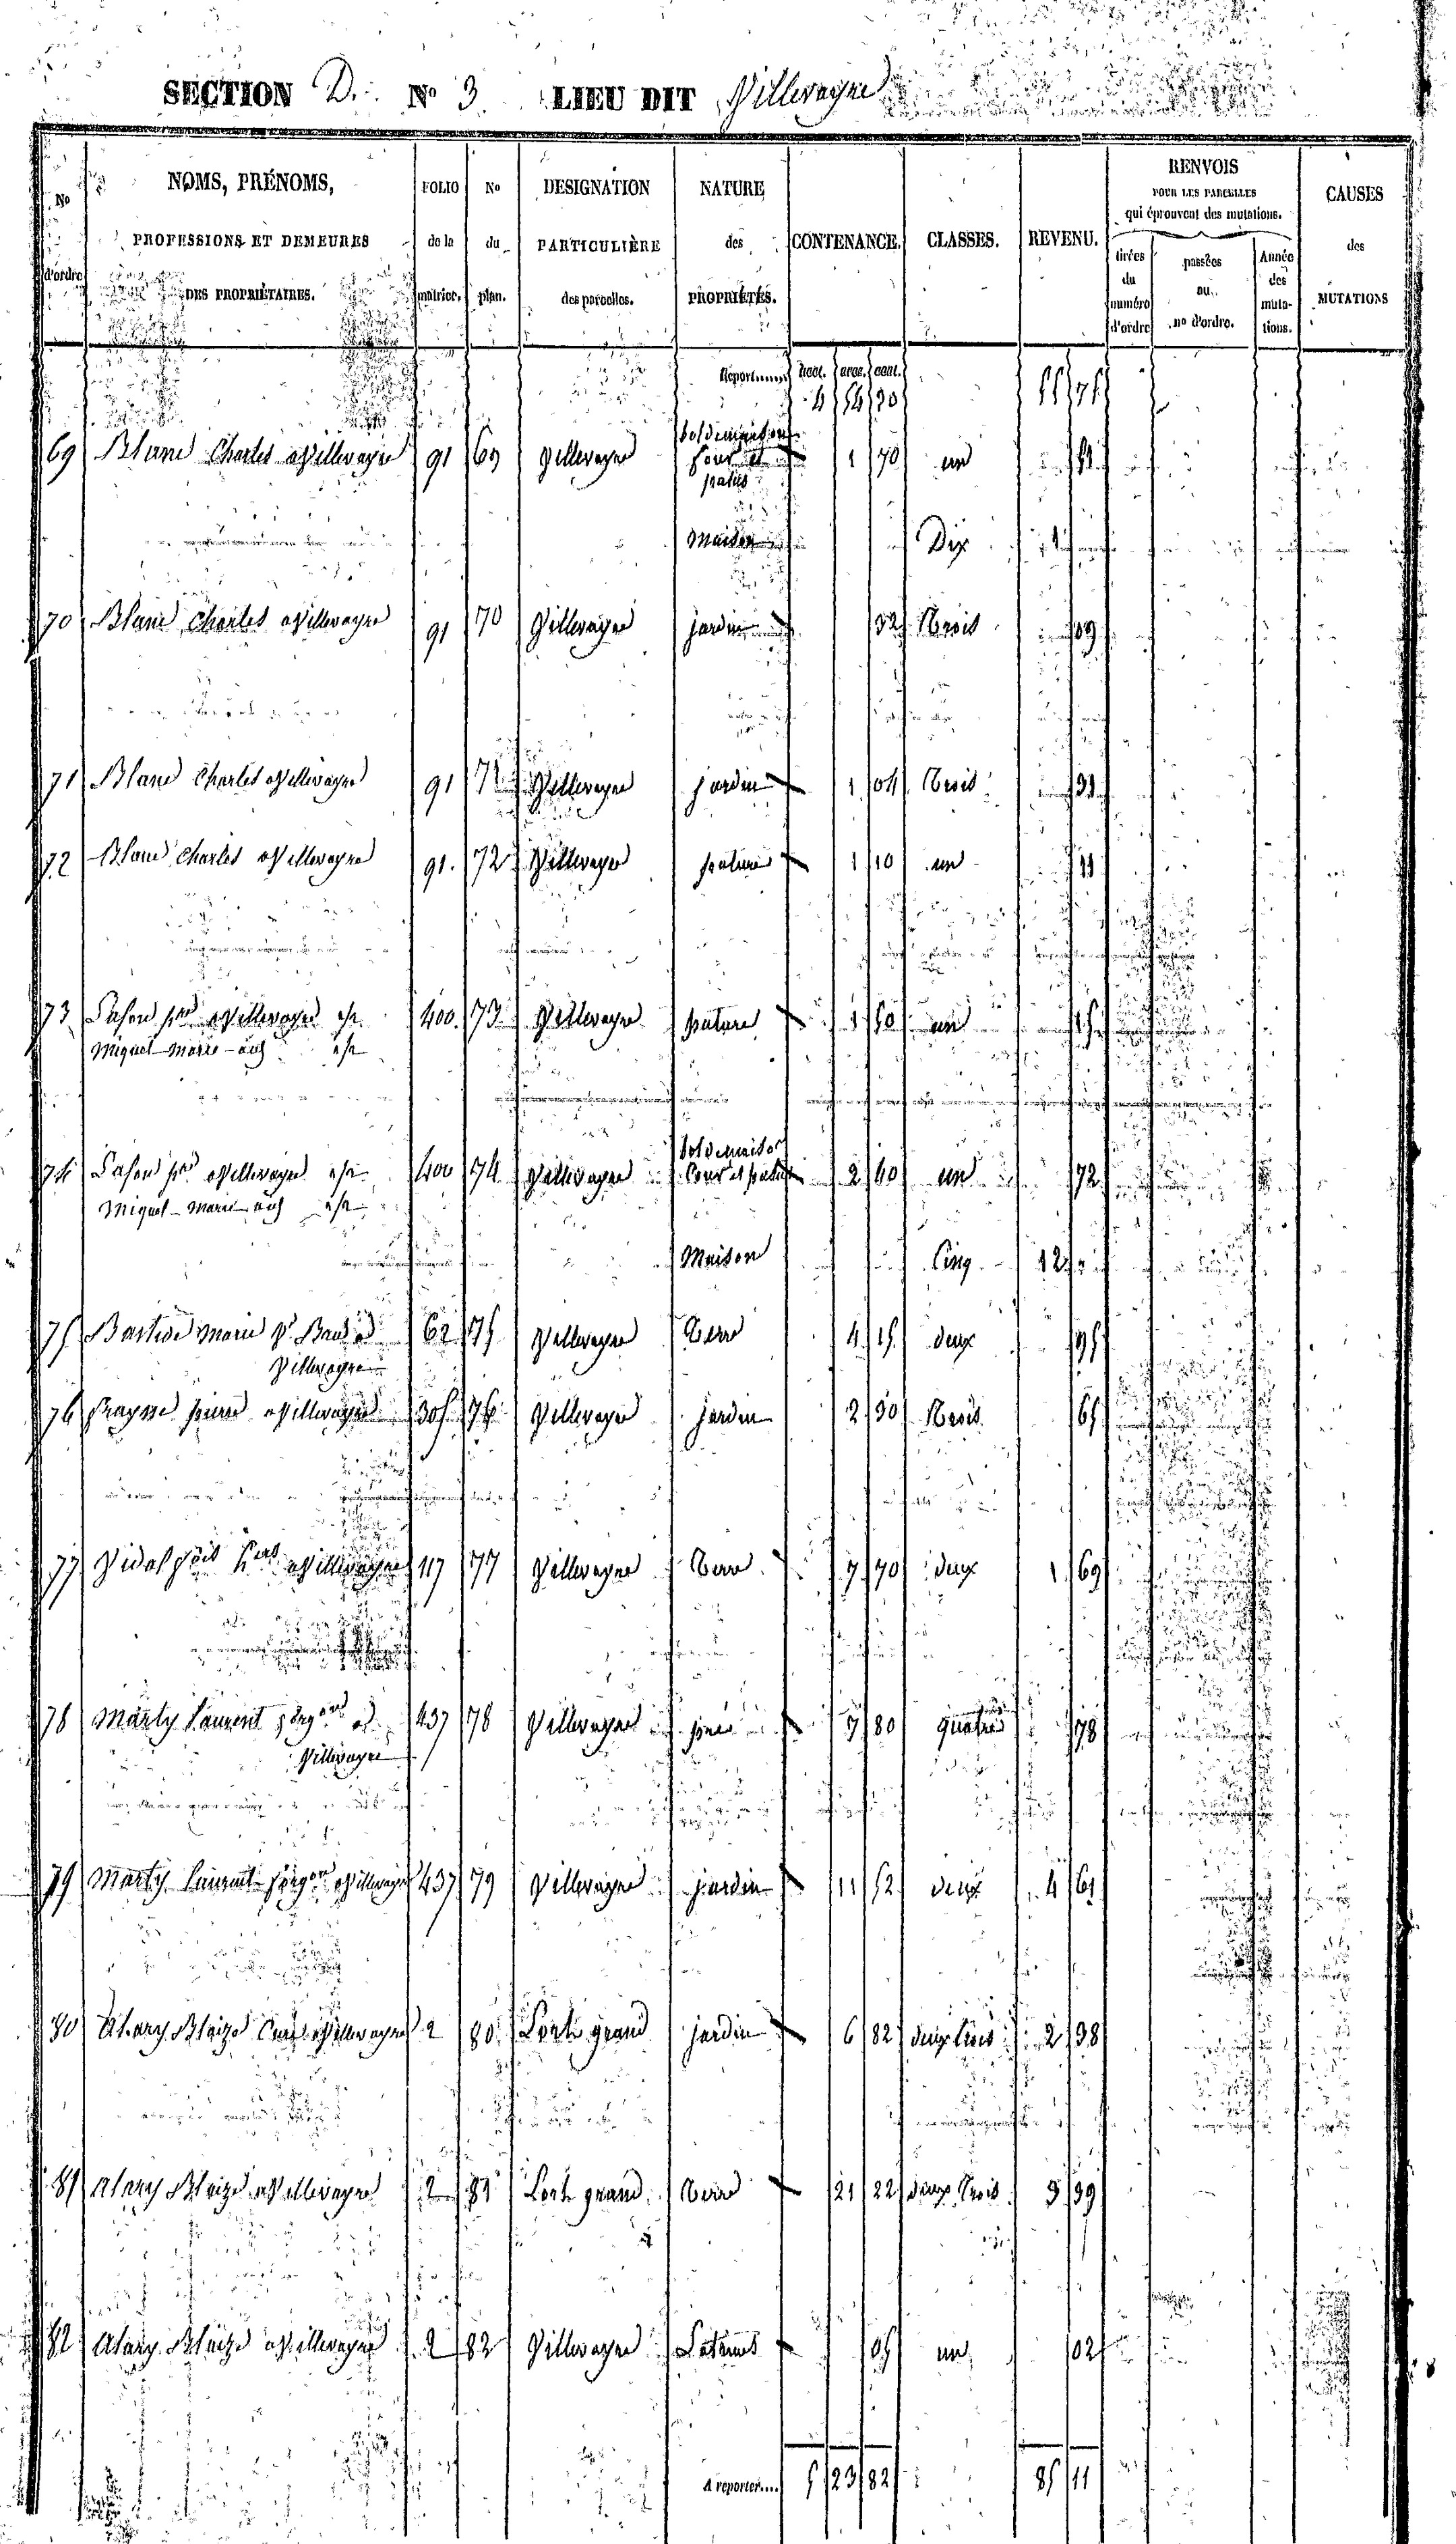 SECTION D. No 3 LIEU DIT Villerayne
No d'ordre
NOMS, PRÉNOMS, PROFESSIONS ET DEMEURES DES PROPRIÉTAIRES.
FOLIO de la matrice.
No du plan.
DESIGNATION PARTICULIÈRE des parcelles.
NATURE des PROPRIÉTÉS.
CONTENANCE.
CLASSES.
REVENU.
RENVOIS POUR LES PARCELLES qui éprouvent des mutations.
tirées du numéro d'ordre
passées au no d'ordre.
Année des mutations.
CAUSES des MUTATIONS
Report hect. ares. cent.
4 54 70 55 75
69 Blanc Charles a Villerayne 91 69 Villerayne Sol de maison 1 70 un
cour et
patus
Maison Dix
70 Blanc Charles a Villerayne 91 70 Villerayne jardin 32 Trois 09
71 Blanc Charles a Villerayne 91 71 Villerayne jardin 1 04 Trois 31
72 Blanc Charles a Villerayne 91. 72 Villerayne pature 1 10 un 11
73 a Villerayne 400. 73 Villerayne pature 1 50 un 15
Miquel Marie
74 a Villerayne 400 74 Villerayne Sol de maison 2 40 un 72
Cour et patus
Miquel Marie
Maison Cinq 12
75 Bastide Marie 62 75 Villerayne Terre 4 15 deux 95
Villerayne
76 Fraysse pierre a Villerayne 305 76 Villerayne jardin 2 30 Trois 65
77 Vidal a Villerayne 117 77 Villerayne Terre 7 70 deux 1 69
78 Marty Laurent a 437 78 Villerayne 7 80 quatre 78
Villerayne
79 Marty Laurent a Villerayne 437 79 Villerayne jardin 11 52 deux 4 61
80 Alary Blaize a Villerayne 2 80 Lort grand jardin 6 82 deux trois 2 38
81 Alary Blaize a Villerayne 2 81 Lort grand Terre 21 22 deux Trois 3 39
82 Alary Blaize a Villerayne 2 82 Villerayne Latrines 05 un 02
A reporter.... 5 23 82 85 11